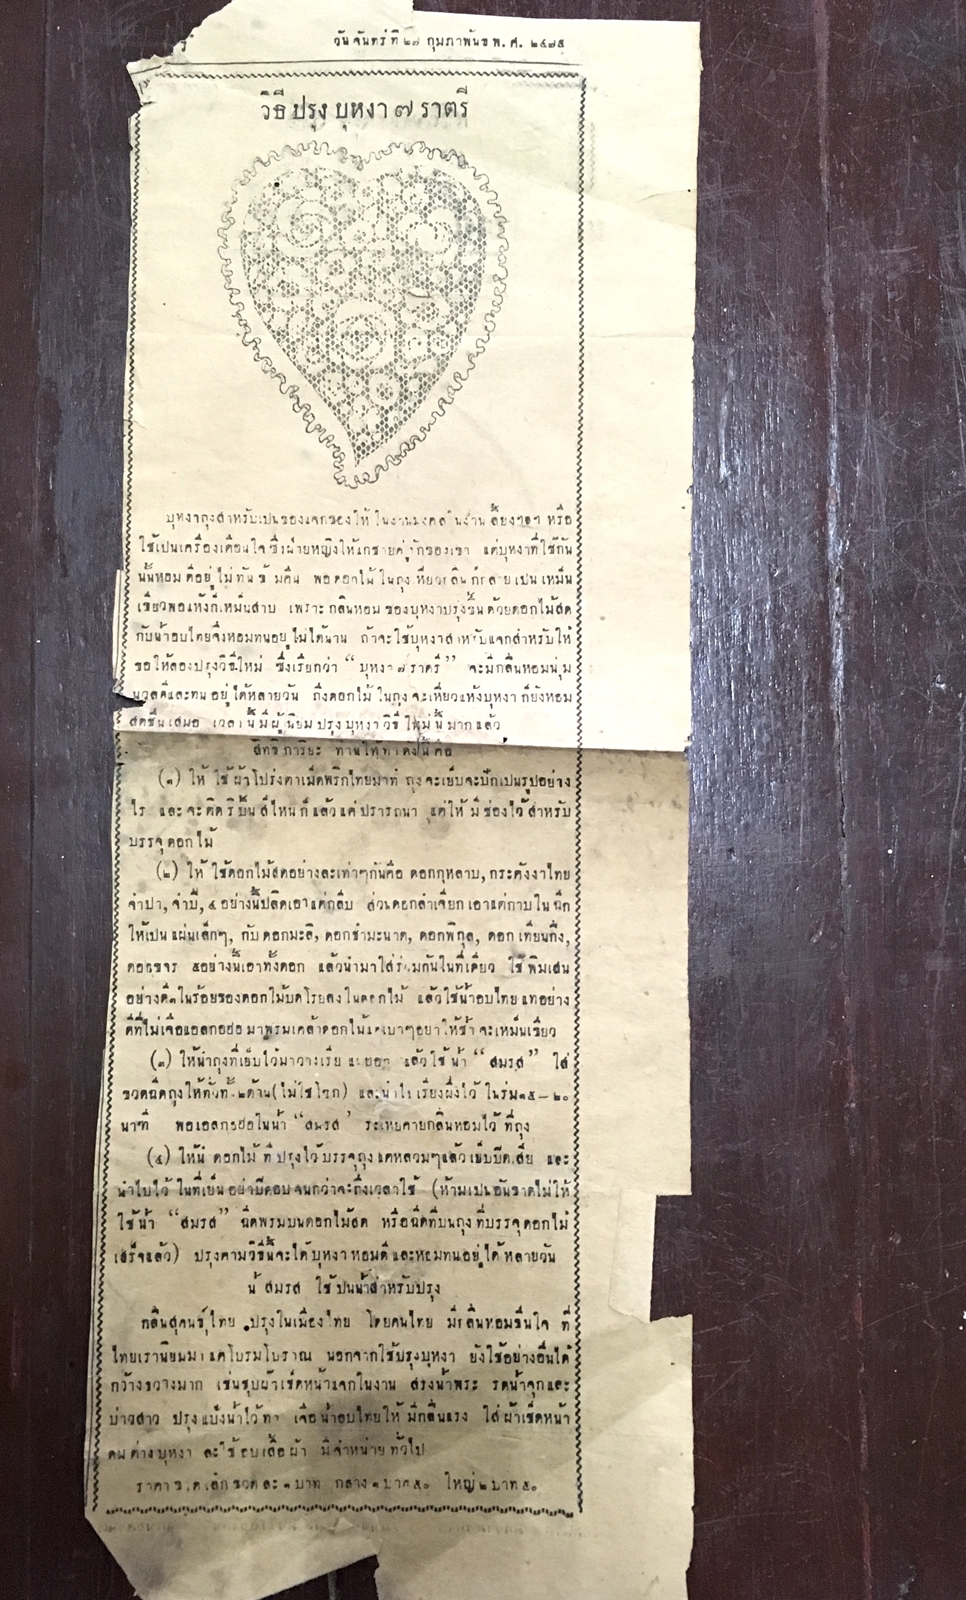 วันจันทร์ที่ ๒๗ กุมภาพันธ พ.ศ. ๒๔๗๕
วิธีปรุงบุหงา ๗ ราตรี
บุหงาถุงสำหรับเป็นของแจกของให้ ในงานมงคล ในงานเลี้ยงฯลฯ หรือ
ใช้เป็นเครื่องเตือนใจซึ่งฝ่ายหญิงให้แก่ชายคู่รักของเขา แต่บุหงาที่ใช้กัน
นั้นหอมดีอยู่ไม่ทันข้ามคืน พอดอกไม้ในถุงเหี่ยวกลิ่นก็กลายเป็นเหม็น
เขียวพอแห้งก็เหม็นสาบ เพราะกลิ่นหอมของบุหงาปรุงขึ้นด้วยดอกไม้สด
กับน้ำอบไทยจึงหอมทนอยู่ไม่ได้นาน ถ้าจะใช้บุหงาสำหรับแจกสำหรับให้
ขอให้ลองปรุงวิธีใหม่ ซึ่งเรียกว่า “บุหงา ๗ ราตรี” จะมีกลิ่นหอมนุ่ม
นวลดีและทนอยู่ได้หลายวัน ถึงดอกไม้ในถุงจะเหี่ยวแห้งบุหงาก็ยังหอม
สดชื่นเสมอ เวลานี้มีผู้นิยมปรุงบุหงาวิธีใหม่นี้มากแล้ว
สิทธิการิยะ ท่านให้ทำดังนี้คือ
(๑) ให้ใช้ผ้าโปร่งตาเม็ดพริกไทยมาทำถุงจะเย็บจะปักเป็นรูปอย่าง
ไร และจะติดริบบิ้นสีไหนก็แล้วแต่ปรารถนา แต่ให้มีช่องไว้สำหรับ
บรรจุดอกไม้
(๒) ให้ใช้ดอกไม้สดอย่างละเท่าๆกันคือ ดอกกุหลาบ, กระดังงาไทย
จำปา, จำปี, ๔ อย่างนี้ปลิดเอาแต่กลีบ ส่วนดอกลำเจียกเอาแต่กาบในฉีก
ให้เป็นแผ่นเล็กๆ, กับดอกมะลิ, ดอกชำมะนาด, ดอกพิกุล, ดอกเทียนกิ่ง,
ดอกขจร ๕อย่างนี้เอาทั้งดอก แล้วนำมาใส่รวมกันในที่เดียว ใช้พิมเสน
อย่างดี๑ในร้อยของดอกไม้บดโรยลงในดอกไม้ แล้วใช้น้ำอบไทยแทอย่าง
ดีที่ไม่เจือแอลกอฮอมาพรมเคล้าดอกไม้แต่เบาๆอย่าให้ช้ำจะเหม็นเขียว
(๓) ให้นำถุงที่เย็บไว้มาวางเรียงแยกออก แล้วใช้น้ำ “สมรส” ใส่
ขวดฉีดถุงให้ทั่วทั้ง๒ด้าน(ไม่ใช่โชก) และนำไปเรียงผึ่งไว้ในร่ม๑๕–๒๐
นาฑี พอแอลกอฮอในน้ำ “สมรส” ระเหยคายกลิ่นหอมไว้ที่ถุง
(๔) ให้นำดอกไม้ที่ปรุงไว้บรรจุถุงแต่หลวมๆแล้วเย็บปิดเสีย และ
นำไปไว้ในที่เย็นอย่าปิดอบจนกว่าจะถึงเวลาใช้ (ห้ามเป็นอันขาดไม่ให้
ใช้น้ำ “สมรส” ฉีดพรมบนดอกไม้สด หรือฉีดที่บนถุงที่บรรจุดอกไม้
เสร็จแล้ว) ปรุงตามวิธีนี้จะได้บุหงาหอมดีและหอมทนอยู่ได้หลายวัน
น้ำสมรส ใช้เป็นน้ำสำหรับปรุง
กลิ่นสุคนธ์ไทย ปรุงในเมืองไทย โดยคนไทย มีกลิ่นหอมชื่นใจ ที่
ไทยเรานิยมมาแต่โบรมโบราณ นอกจากใช้ปรุงบุหงา ยังใช้อย่างอื่นได้
กว้างขวางมาก เช่นชุบผ้าเช็ดหน้าแจกในงาน สรงน้ำพระ รดน้ำจุกและ
บ่าวสาว ปรุงแป้งน้ำไว้ทา เจือน้ำอบไทยให้มีกลิ่นแรง ใส่ผ้าเช็ดหน้า
ดมต่างบุหงา และใช้อบเสื้อผ้า มีจำหน่ายทั่วไป
ราคาขวดเล็กขวดละ ๑ บาท กลาง ๑ บาท ๕๐ ใหญ่ ๒ บาท ๕๐